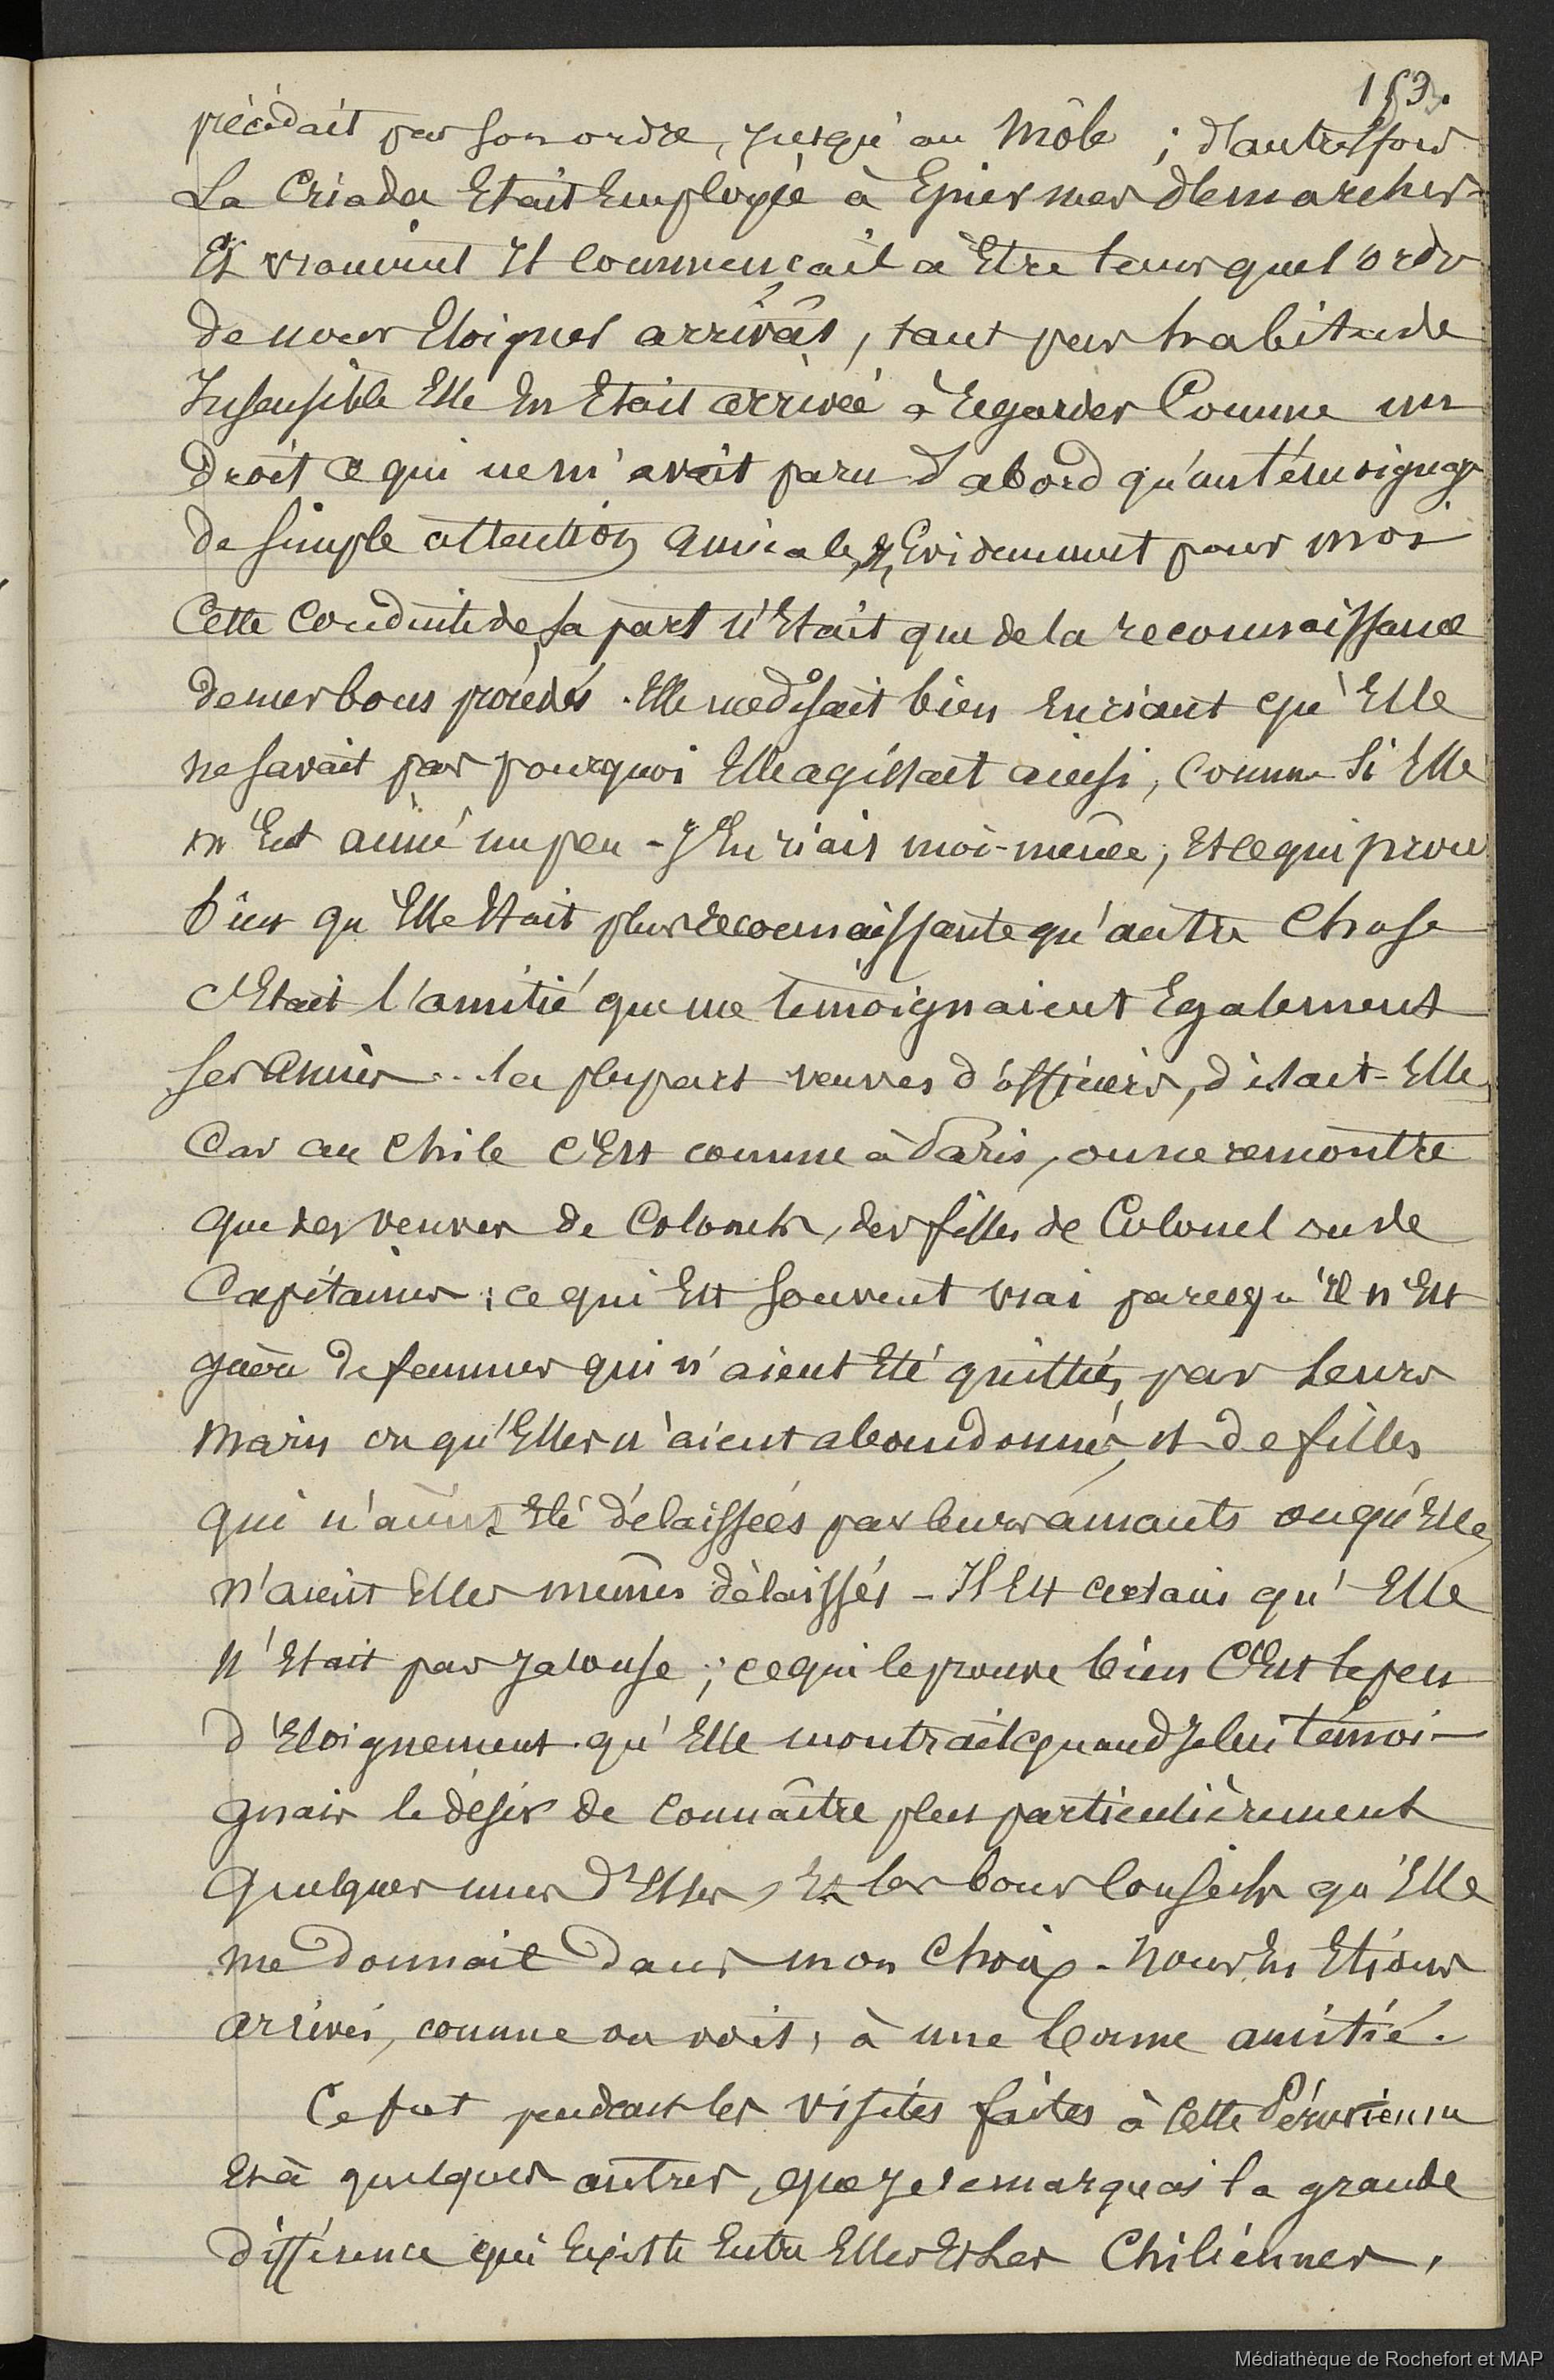 153.
précédait par son ordre, jusqu'au Môle ; d'autres fois
La Criada Etait Employée à Epier mes démarches.
Et vraiment Il commençait à Etre temps que l'ordre
de nous Eloigner arrivât, tant par habitude
Insensible Elle En Etait arrivée à Regarder Comme un
droit ce qui ne m'avait paru d'abord qu'un témoignage
de simple attention amicale, Evidemment pour moi
Cette Conduite de sa part n'Etait que de la reconnaissance
de mes bons procédés. Elle me disait bien En riant qu'Elle
ne savait pas pourquoi Elle agissait ainsi, Comme Si Elle
m'Eut aimé un peu - J'En riais moi-même, Et ce qui prouve
bien qu'Elle Etait plus reconnaissante qu'autre Chose
C'Etait l'amitié que me témoignaient Egalement
ses Amies .. la plupart veuves d'officiers, disait-Elle
Car au Chile C'Est comme à Paris, on ne rencontre
que des veuves de Colonels, des filles de Colonel ou de
Capitaines ; ce qui Est souvent vrai parcequ'Il n'Est
guère de femmes qui n'aient Eté quittées par Leurs
maris ou qu'Elles n'aient abandonnés et de filles
qui n'aient Eté délaissées par leurs amants ou qu'Elles
n'aient Elles mêmes délaissés - Il Est certain qu'Elle
n'Etait pas Jalouse ; ce qui le prouve bien C'Est le peu
d'Eloignement qu'Elle montrait quand Je lui témoi-
gnais le désir de Connaître plus particulièrement
quelques unes d'Elles, Et les bons Conseils qu'Elle
me donnait dans mon Choix - Nous En Etions
arrivés, comme on voit, à une bonne amitié.
Ce fut pendant les visites faites à Cette Péruvienne
Et à quelques autres, que Je remarquai la grande
différence qui Existe Entre Elles Et Les Chiliennes.
Médiathèque de Rochefort et MAP